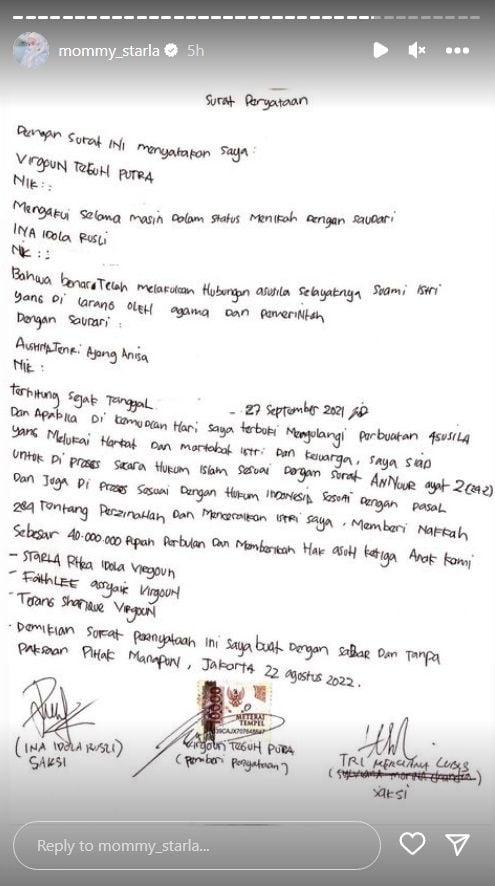 mommy_starla 5h
Surat Peryataan
Dengan Surat INI menyatakan Saya :
VIRGOUN TEGUH PUTRA
NIK : :
Mengakui Selama masih Dalam Status Menikah Dengan Saudari
INA IDOLA RUSLI
NIK : :
Bahwa benar Telah melakukan Hubungan asusila Selayaknya Suami istri
yang Di larang oleh agama Dan pemerintah
Dengan Saudari :
Tenri Ajeng Anisa
NIK :
terhitung Sejak Tanggal - 27 September 2021
Dan Apabila Di kemudian Hari Saya terbukti Mengulangi Perbuatan asusila
yang Melukai Harkat Dan martabat istri Dan Keluarga, Saya Siap
untuk Di proses Secara Hukum Islam Sesuai Dengan Surat ANNUUR ayat 2 (24:2)
Dan Juga Di Proses Sesuai Dengan Hukum Indonesia Sesuai Dengan Pasal
284 Tentang Perzinahan Dan Menceraikan istri saya, Memberi Nafkah
Sebesar 40.000.000 Rupiah Perbulan Dan Memberikan Hak asuh Ketiga Anak Kami
- STARLA Rhea IDOLA VIRGOUN
- FaithLEE VIRGOUN
- Terang Sharique VIRGOUN
. Demikian Surat Peanyataan Ini Saya buat Dengan Sadar Dan Tanpa
Paksaan Pihak Manapun, Jakarta 22 agustus 2022.
10000
METERAI
TEMPEL
(INA IDOLA RUSLI)
SAKSI
Virgoun TEGUH PUTRA
(pemberi Penyataan)
TRI LUBIS
SAKSI
Reply to mommy_starla...